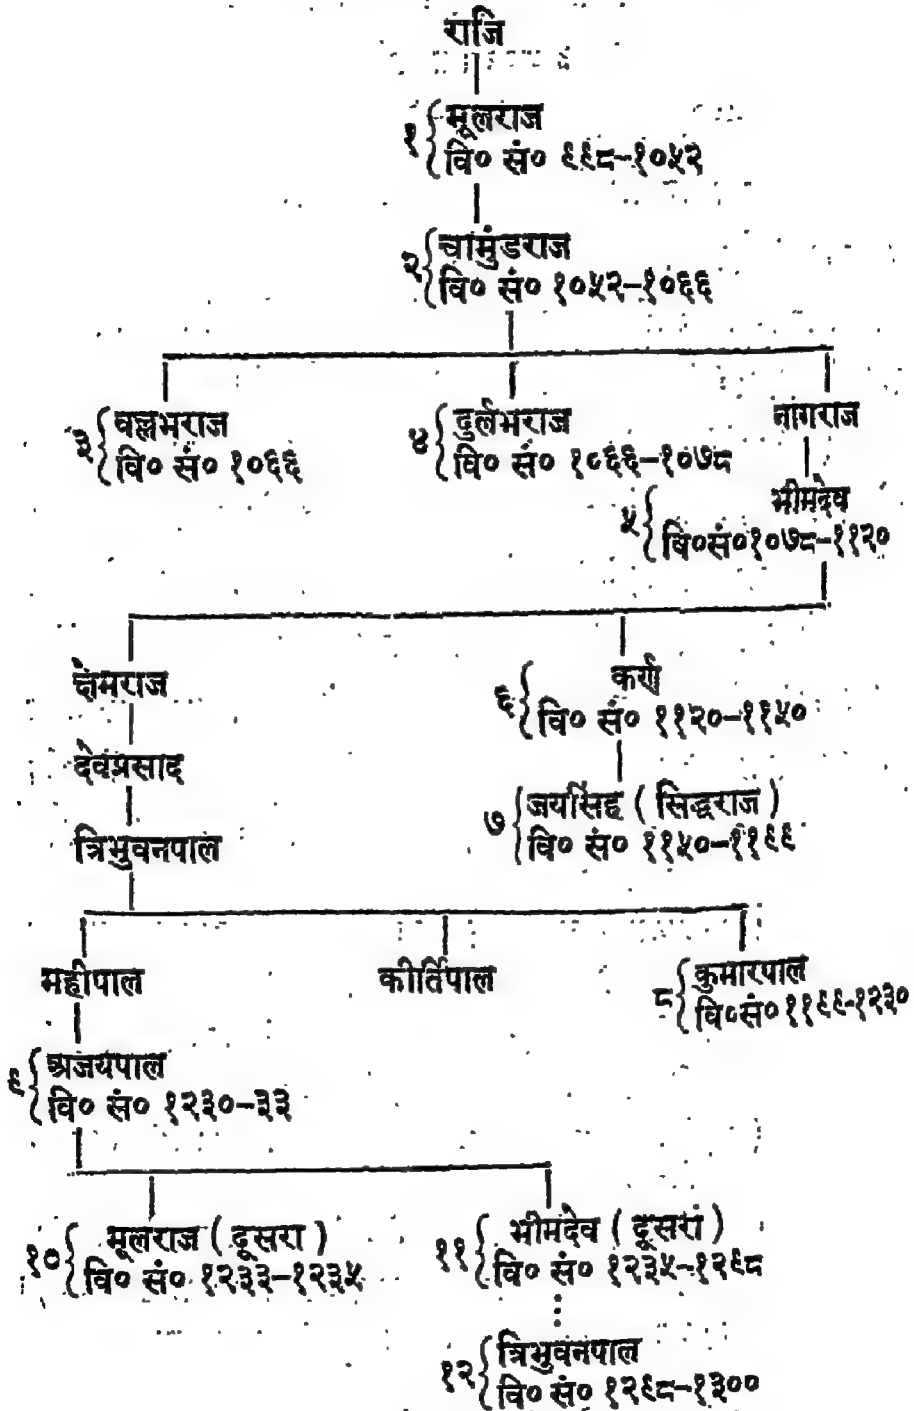 राजि
१ मूलराज
वि० सं० ९९८-१०५२
२ चामुंडराज
वि० सं० १०५२-१०६६
३ वल्लभराज
वि० सं० १०६६
४ दुर्लभराज
वि० सं० १०६६-१०७८
नागराज
५ भीमदेव
वि०सं०१०७८-११२०
क्षेमराज
६ कर्ण
वि० सं० ११२०-११५०
देवप्रसाद
७ जयसिंह ( सिद्धराज )
वि० सं० ११५०-११९९
त्रिभुवनपाल
महीपाल
कीर्तिपाल
८ कुमारपाल
वि०सं०११९९-१२३०
९ अजयपाल
वि० सं० १२३०-३३
१० मूलराज ( दूसरा )
वि० सं० १२३३-१२३५
११ भीमदेव ( दूसरा )
वि० सं० १२३५-१२९८
१२ त्रिभुवनपाल
वि० सं० १२९८-१३००